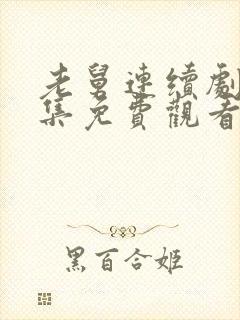 老舅連續劇
集免費觀看
黑百合姬